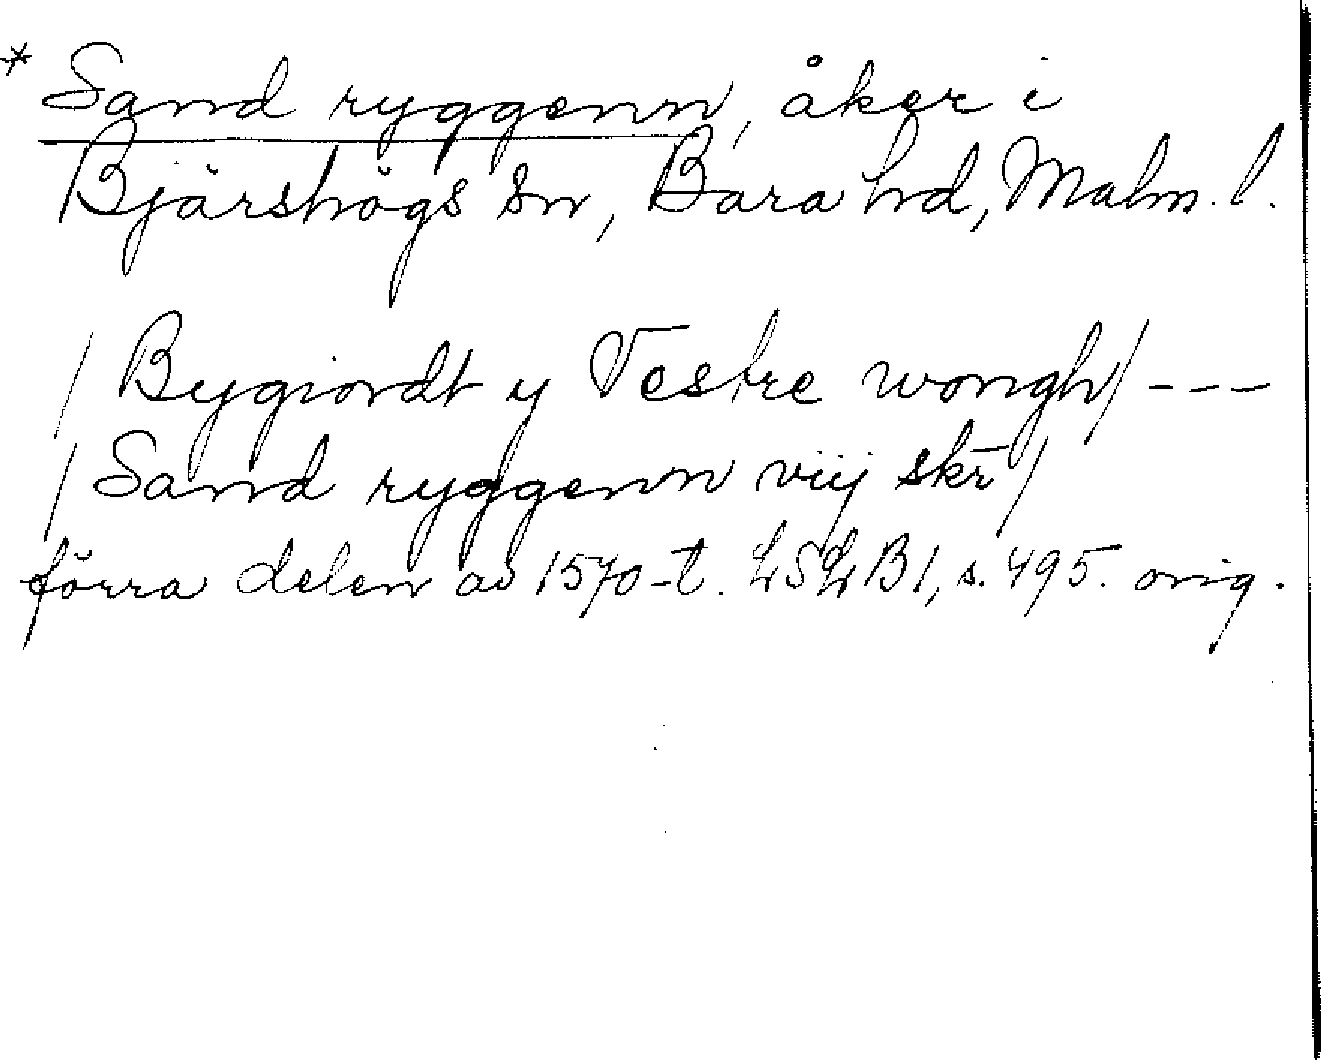 * Sand ryggenn, åker i
Bjärshögs sn, Bara hd, Malm. l.
/ Bygiordt y Vestre wongh / ---
/ Sand ryggenn viij skr /
förra delen av 1570-t. LSLB1, s. 495. orig.